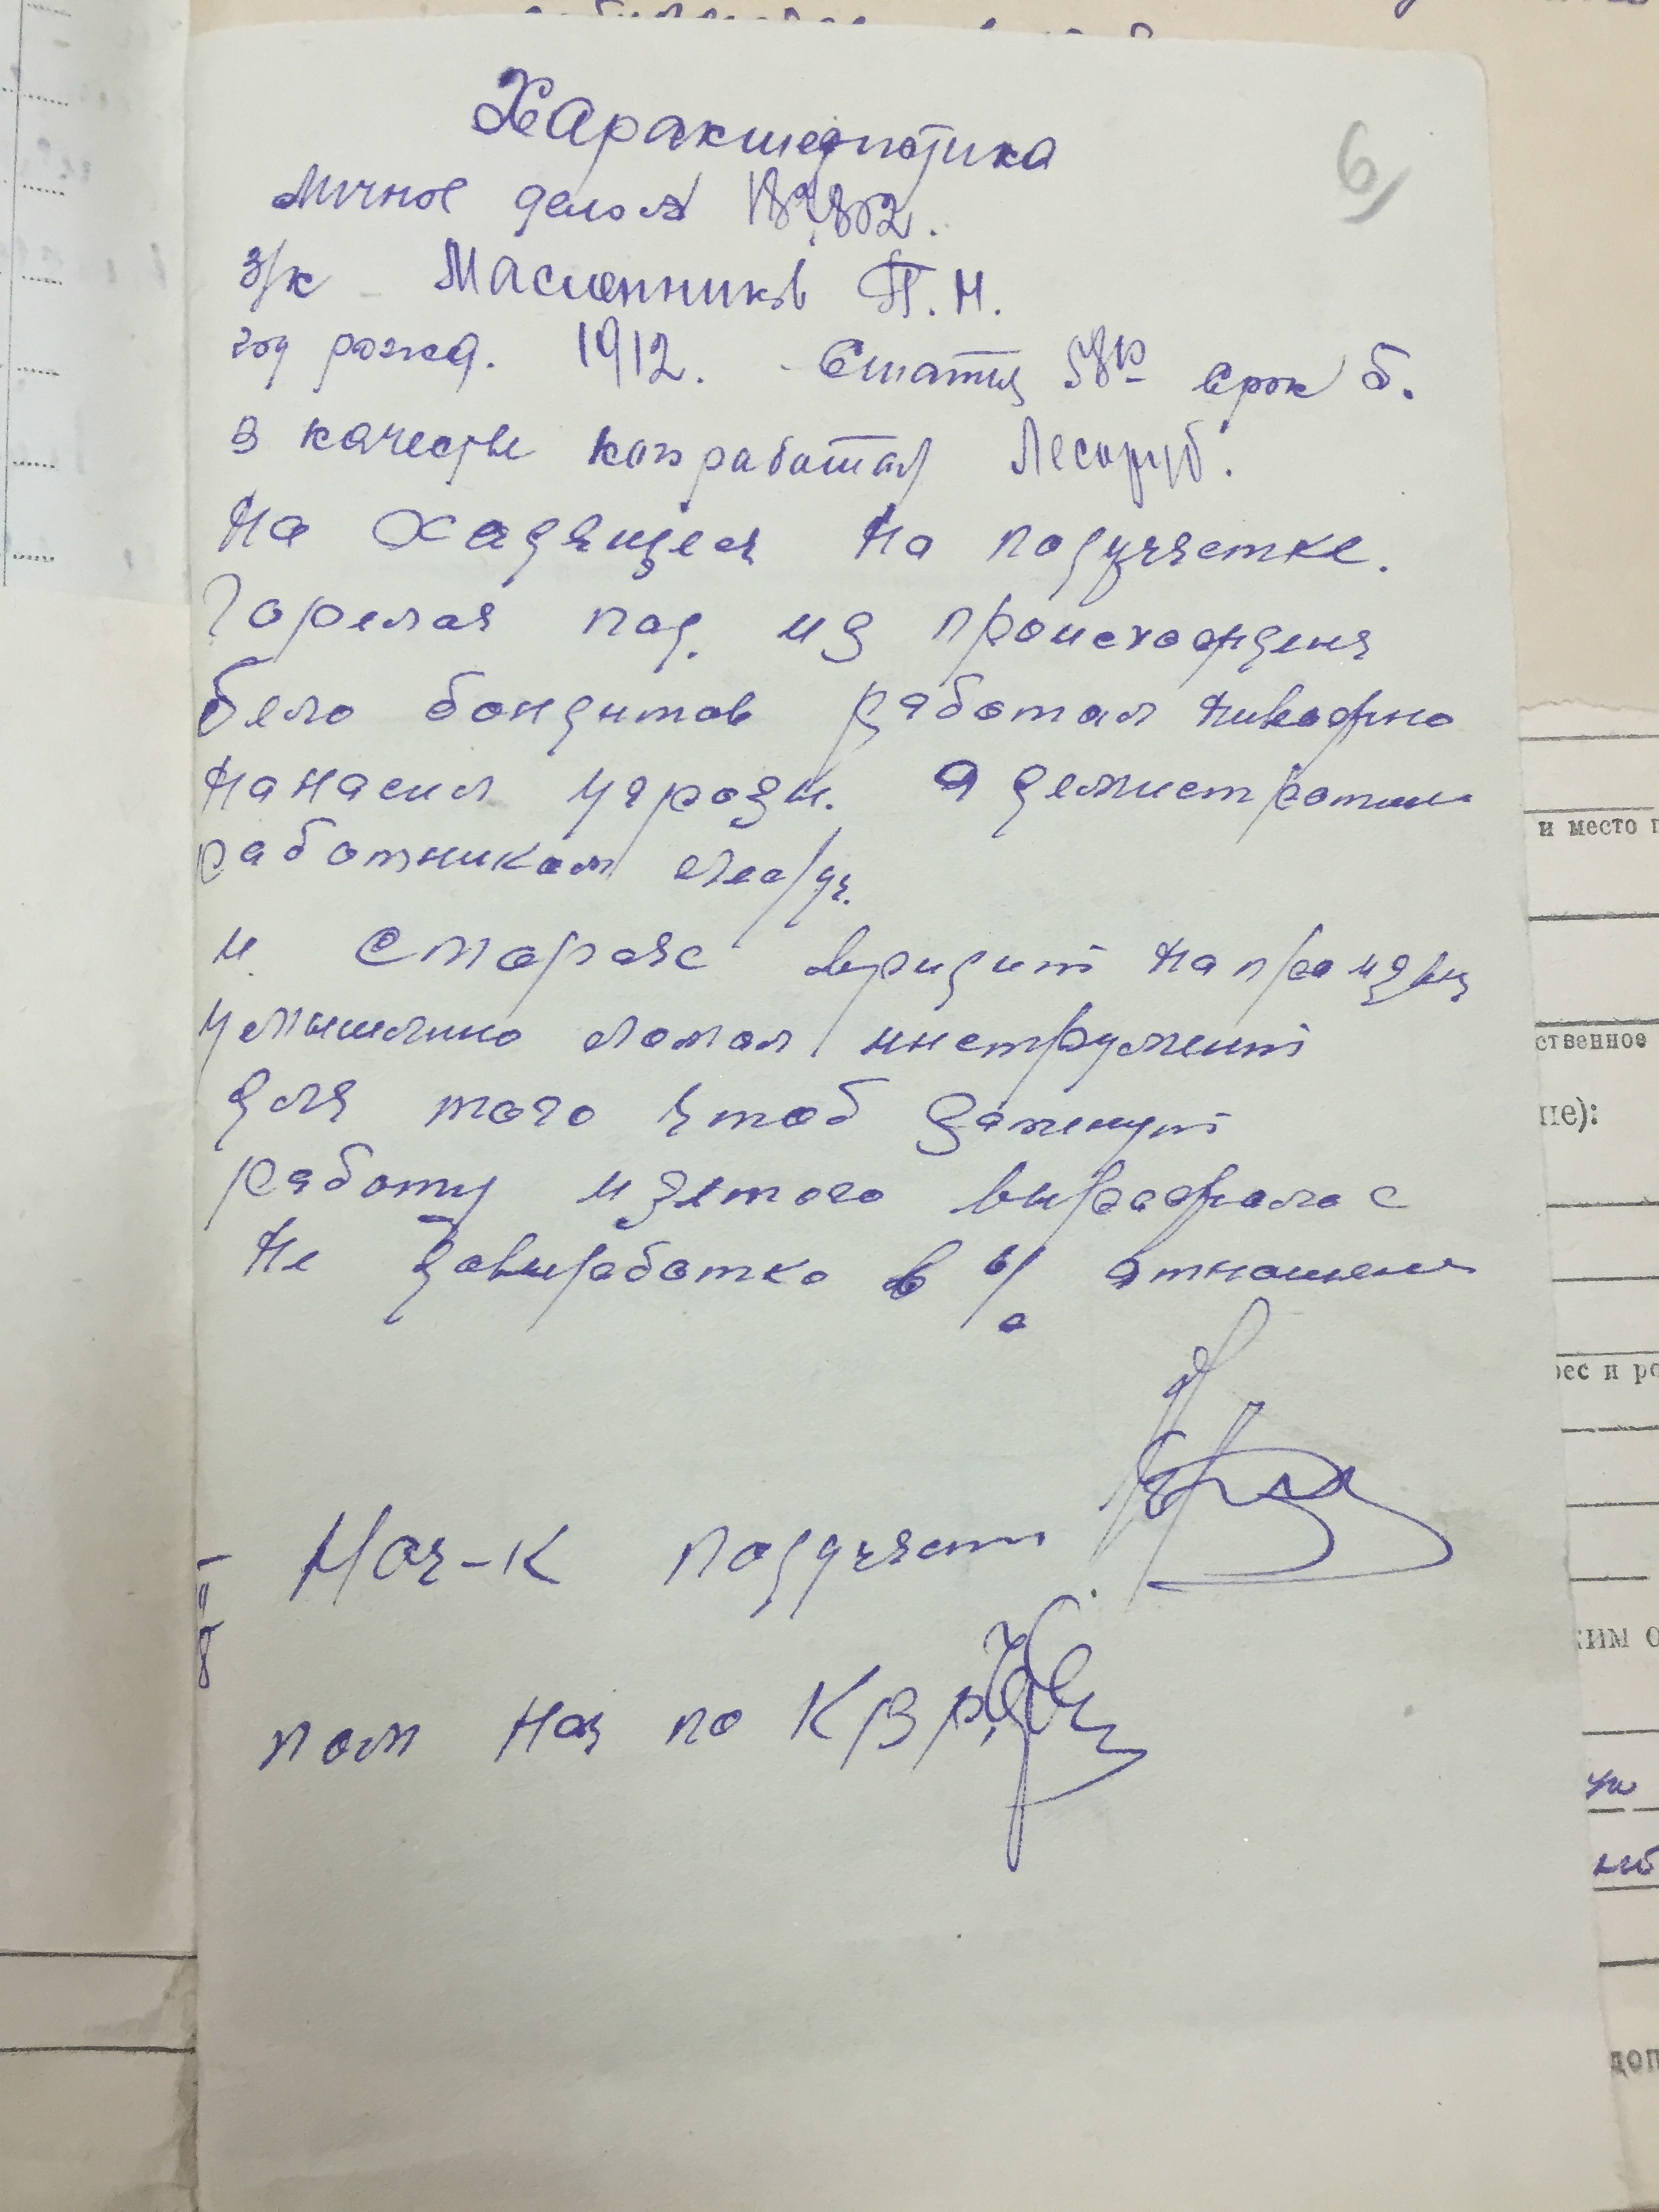 6
Характеристика
Личное дело № 189802.
з/к Масленников П. Н.
год рожд. 1912. Статья 58 10 срок 5.
в качестве работал Лесоруб.
На Хадящеся на подучястке.
Горелая под. из происхождения
бело бондитов работал никадно
нанасил угрози. адеместротив
работникам
и старяс вридит на праизвц
умышлино ломал инструмент
для того чтоб
работу изетого выражалос
не довыработко в % отношени
Нач-к подучяст
пом нач по КВР
и место п
ственное
ие):
рес и ро
ким о
доп